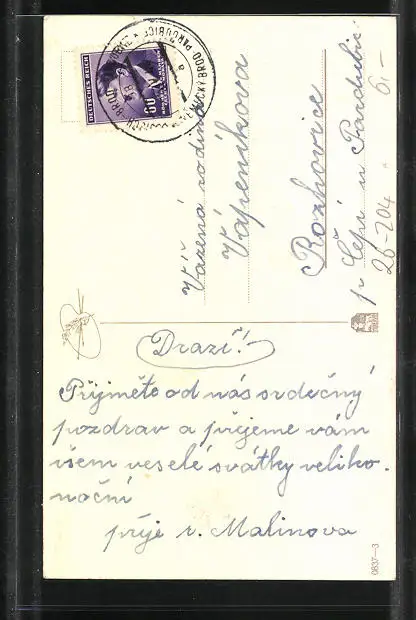 DEUTSCHES REICH
60
Vážená rodina
Vápeníkova
Rozhovice
p. Čepí u Pardubic
26-204 6,-
Drazí!
Přijměte od nás srdečný
pozdrav a přejeme vám
všem veselé svátky veliko-
noční
přeje r. Malinova
0837-3